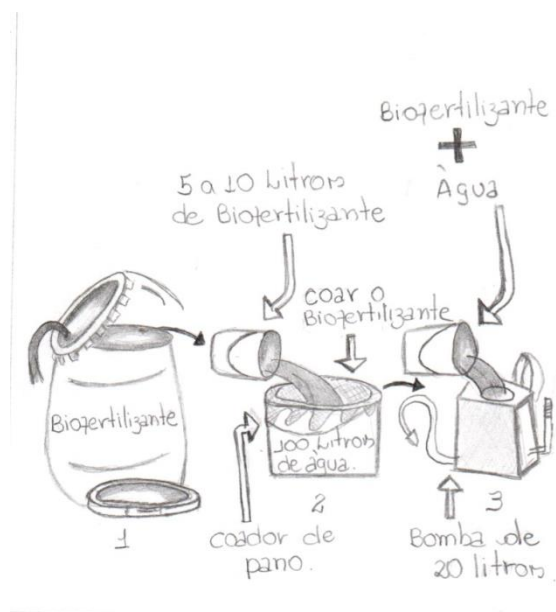 Biofertilizante
+
Àgua
5 a 10 Litros
de Biofertilizante
coar o
Biofertilizante
Biofertilizante
100 Litros
de àgua.
1
2
3
coador de
pano.
Bomba de
20 litros.